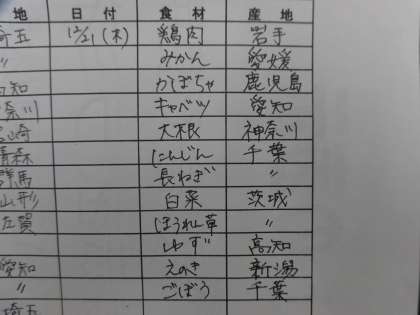 地 日付 食材 産地
埼玉 12/21(木) 鶏肉 岩手
〃 みかん 愛媛
高知 かぼちゃ 鹿児島
神奈川 キャベツ 愛知
宮崎 大根 神奈川
青森 にんじん 千葉
群馬 長ねぎ 〃
山形 白菜 茨城
佐賀 ほうれん草 〃
ゆず 高知
愛知 えのき 新潟
〃 ごぼう 千葉
埼玉